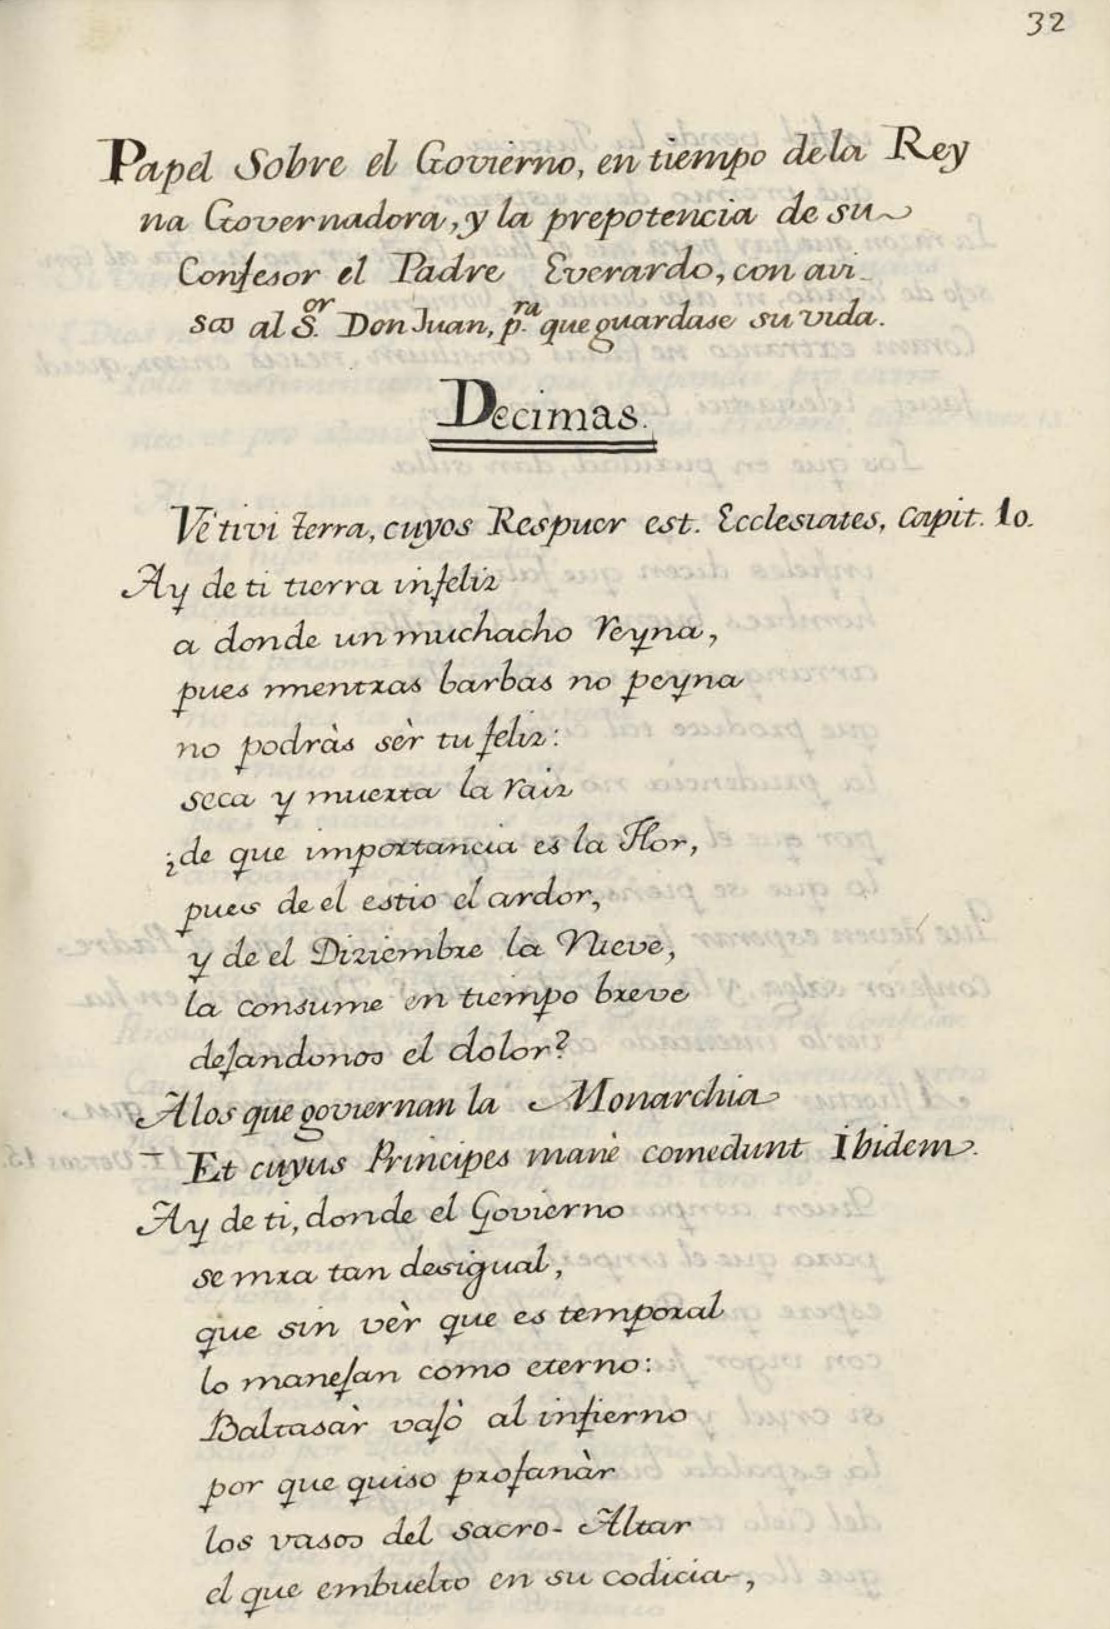 32
Papel Sobre el Govierno, en tiempo de la Rey
na Governadora, y la prepotencia de su
Confesor el Padre Everardo, con avi_
sos al S.or Don Juan, p.ra que guardase su vida.
Decimas.
Vè tivi terra, cuyos Respuer est. Ecclesiates, Capit. 10.
Ay de ti tierra infeliz
a donde un muchacho reyna,
pues mientras barbas no peyna
no podràs sèr tu feliz:
seca y muerta la raiz
¿de que importancia es la Flor,
pues de el estio el ardor,
y de el Diziembre la Nieve,
la consume en tiempo breve
dejandonos el dolor?
A los que goviernan la Monarchia
Et cuyus Principes manè comedunt Ibidem.
Ay de ti, donde el Govierno
se mira tan desigual,
que sin vèr que es temporal
lo manejan como eterno:
Baltasàr vajò al infierno
por que quiso profanàr
los vasos del sacro- Altar
el que embuelto en su codicia,